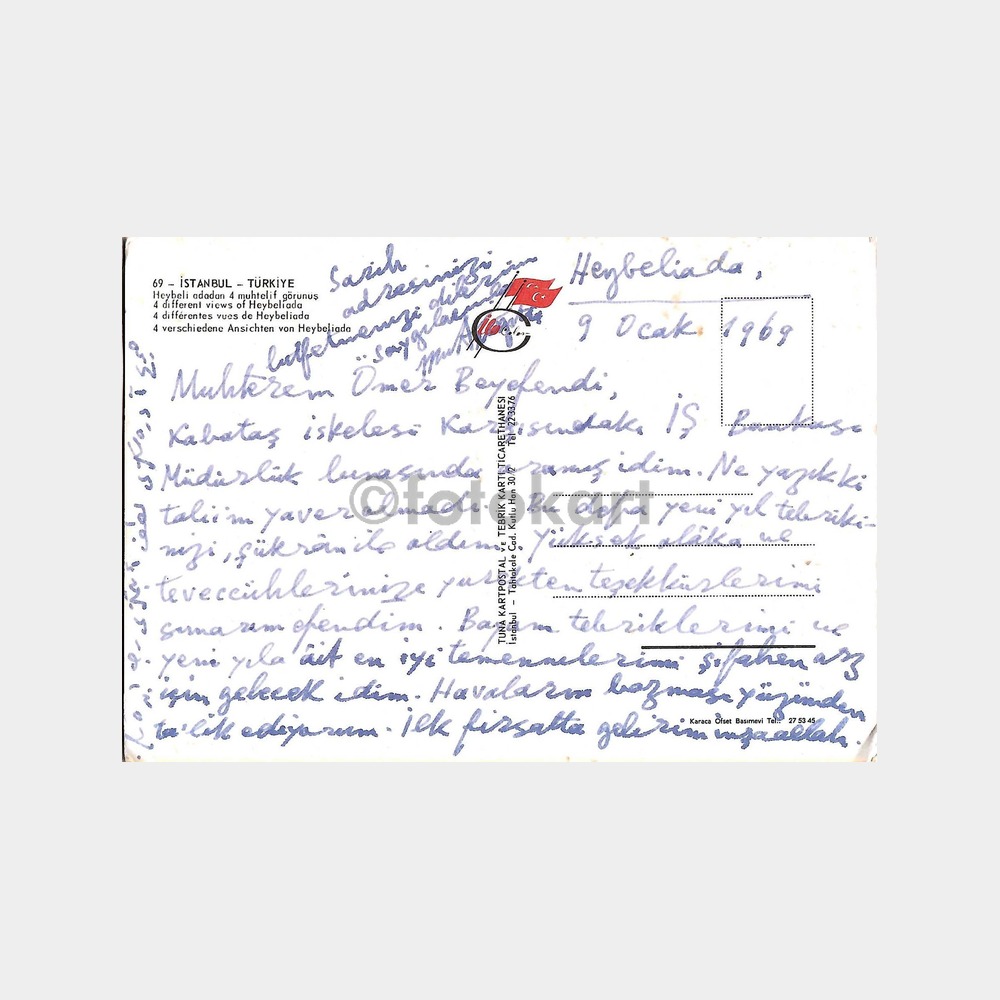 69 – İSTANBUL – TÜRKİYE
Heybeli adadan 4 muhtelif görünuş
4 different views of Heybeliada
4 différentes vues de Heybeliada
4 verschiedene Ansichten von Heybeliada
Heybeliada,
9 Ocak 1969
Muhterem Ömer Beyefendi,
Kabataş iskelesi Karşısındaki İŞ Bankası
Müdürlük binasında aramış idim. Ne yazıkki
taliim yaver olmadı. Bu defa yeni yıl tebriki-
nizi, şükrân ile aldım. Yüksek alâka ve
teveccühlerinize yürekten teşekkürlerimi
sunarım efendim. Bayram tebriklerimi ve
yeni yıla âit en iyi temennilerimi şifahen arz
için gelecek idim. Havaların bozması yüzünden
ta'lik ediyorum. İlk fırsatta gelirim inşaallah.
Sarih
adresinizi
lutfetmenizi dilerim
Saygılarımla
TUNA KARTPOSTAL VE TEBRİK KARTI TİCARETHANESİ
İstanbul – Tahtakale Cad. Kutlu Han 30/2 Tel: 22 33 76
© Karaca Ofset Basımevi Tel.: 27 53 45
©fotokart